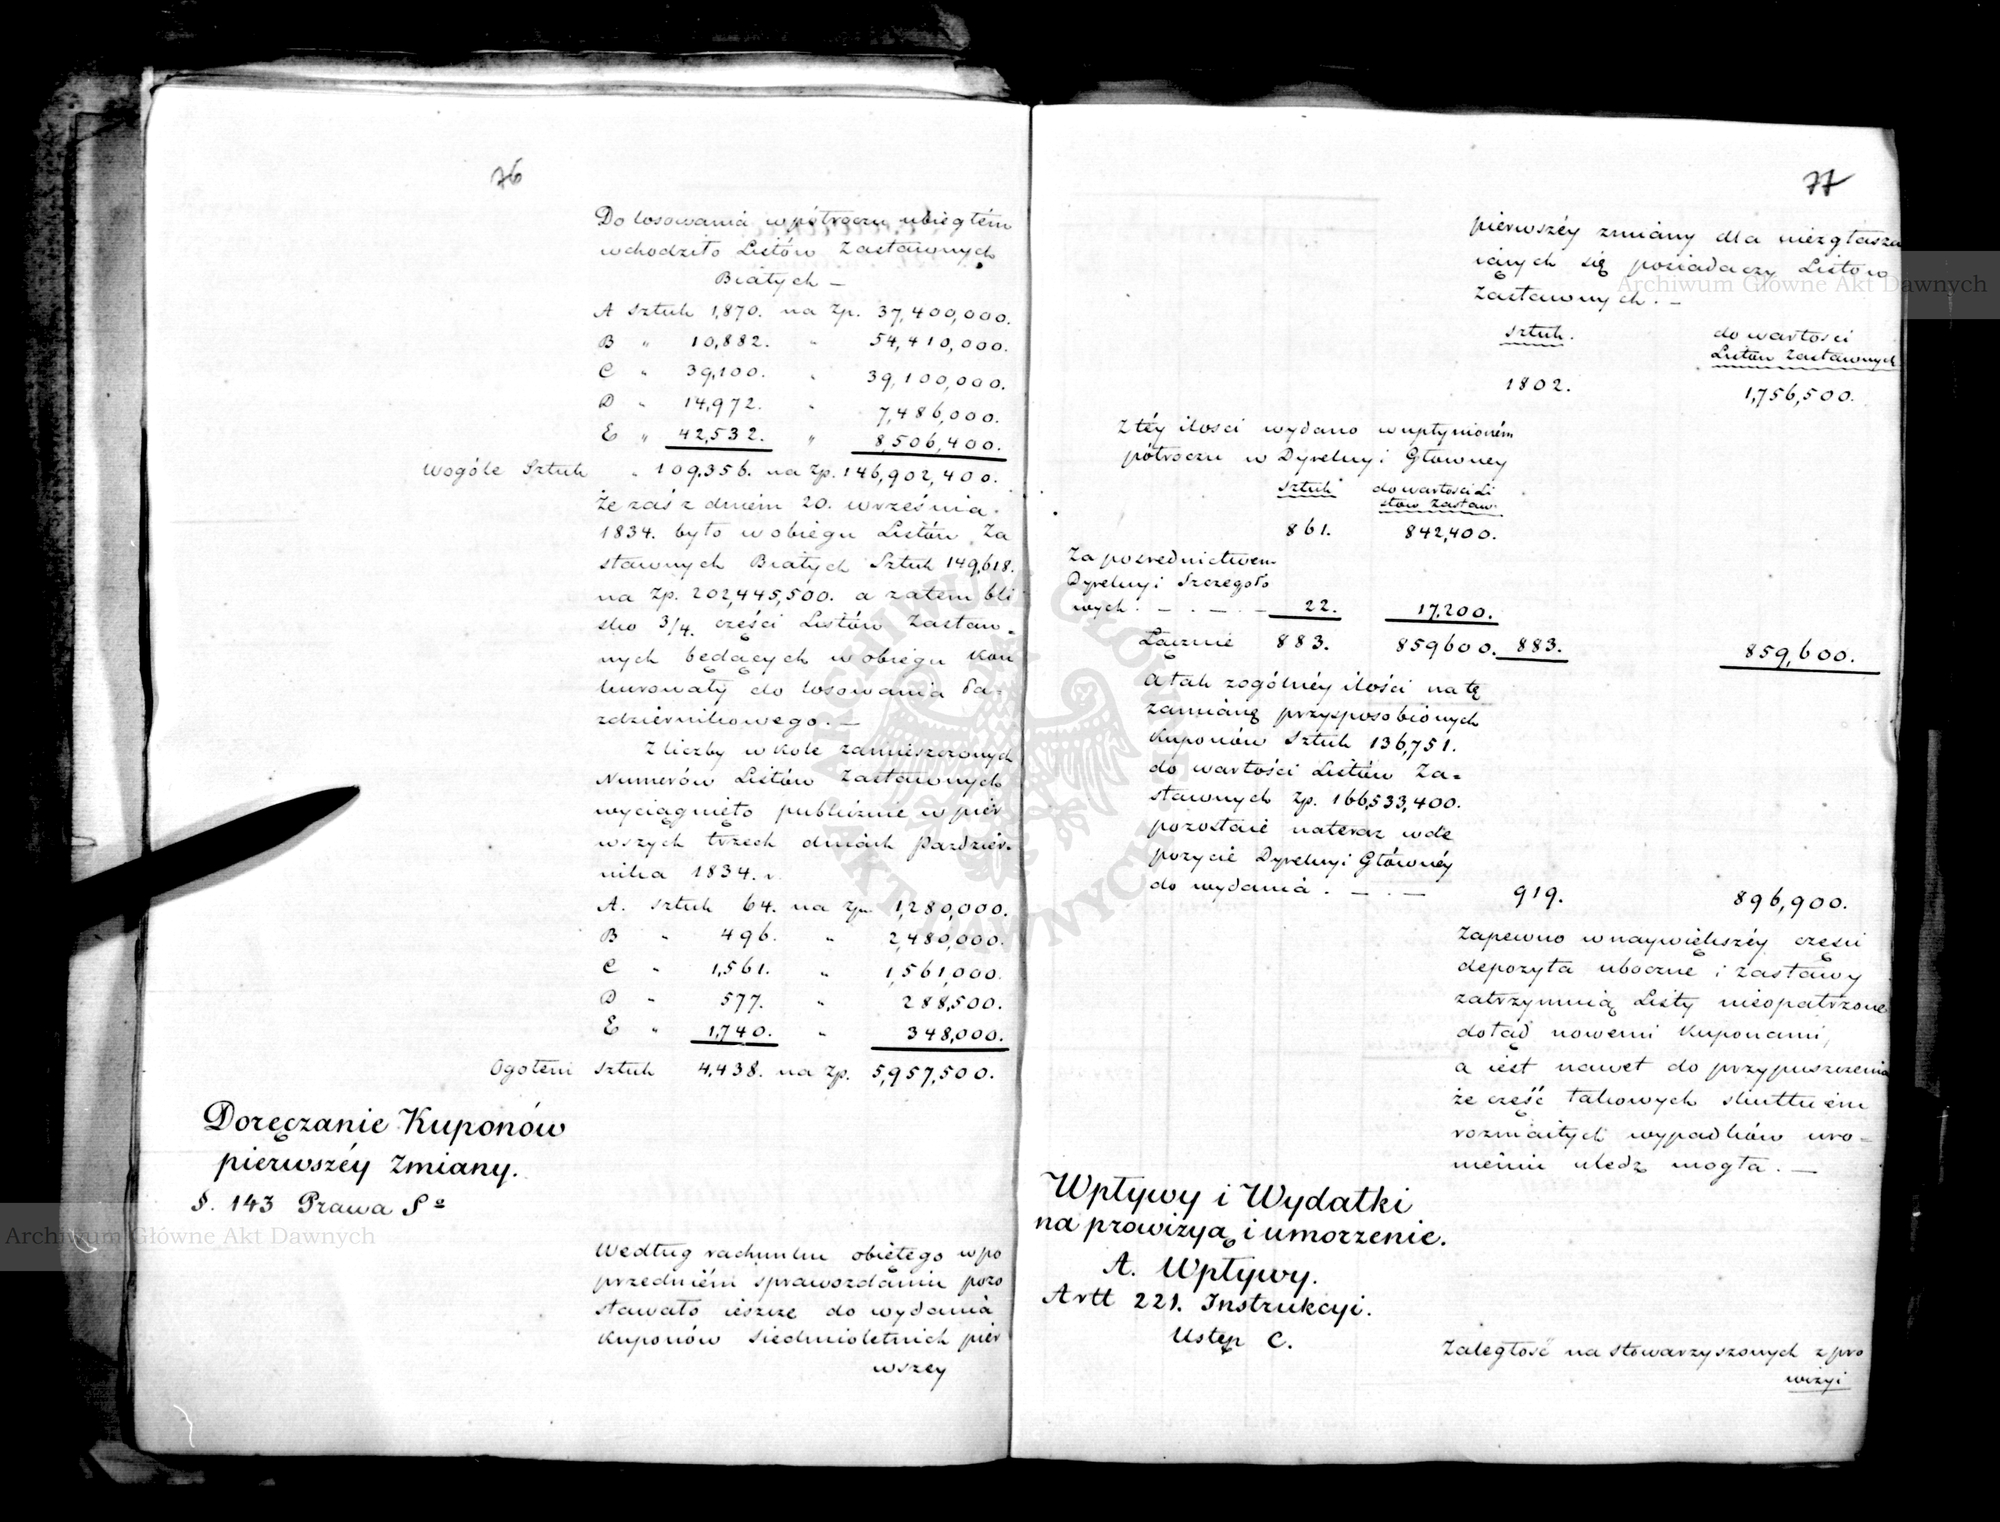 76
Do losowania w półroczu ubiegłém
wchodziło Listów Zastawnych
Białych —
A Sztuk 1,870. na Zp. 37,400,000.
B " 10,882. " 54,410,000.
C " 39,100. " 39,100,000.
D " 14,972. " 7,486,000.
E " 42,532. " 8,506,400.
Wogóle Sztuk " 109,356. na Zp. 146,902,400.
Że zaś z dniem 20. września
1834. było w obiegu Listów Za
stawnych Białych Sztuk 149,618.
na Zp. 202,445,500. a zatem bli
sko 3/4. części Listów Zastaw=
nych będących w obiegu kon
kurowały do losowania Pa-
zdziernikowego. —
Z liczby w kole zamieszczonych
Numerów Listów Zastawnych
wyciągnięto publicznie w pier
wszych trzech dniach Pazdzier-
nika 1834. r.
A. Sztuk 64. na Zp. 1,280,000.
B " 496. " 2,480,000.
C " 1,561. " 1,561,000.
D " 577. " 288,500.
E " 1,740. " 348,000.
Ogółem Sztuk 4,438. na Zp. 5,957,500.
Doręczanie Kuponów
pierwszéy Zmiany.
§. 143 Prawa S=
Według rachunku obiętego w po
przedniém sprawozdaniu pozo
stawało ieszcze do wydania
Kuponów siedmioletnich pier
wszey
77
pierwszéy zmiany dla niezgłasza
iących się posiadaczy Listów
Zastawnych. —
Sztuk. do wartości
Listów Zastawnych
1802. 1,756,500.
Z téy ilości wydano w upłynioném
półroczu w Dyrekcyi Głowney
Sztuk do wartości Li
stów Zastaw.
861. 842,400.
Za posrednictwem
Dyrekcyi Szczegoło
wych. — . — . — 22. 17,200.
Łącznie 883. 859600. 883. 859,600.
A tak z ogólnéy ilości na tę
zamianę przysposobionych
Kuponów Sztuk 136,751.
do wartości Listów Za=
stawnych Zp. 166,533,400.
pozostaie nateraz w de
pozycie Dyrekcyi Głównéy
do wydania. — . — 919. 896,900.
Zapewno w naywiększéy częsci
depozyta uboczne i zastawy
zatrzymuią Listy nieopatrzone
dotąd nowemi Kuponami,
a iest nawet do przypuszczenia
że część takowych skutkiem
rozmaitych wypadków uro-
nieniu uledz mogła. —
Wpływy i Wydatki
na prowizyą i umorzenie.
A. Wpływy.
Artt 221. Instrukcyi.
Ustęp C.
Zaległość na stowarzyszonych z pro
wizyi
Archiwum Główne Akt Dawnych
Archiwum Główne Akt Dawnych
ARCHIWUM GŁÓWNE AKT DAWNYCH